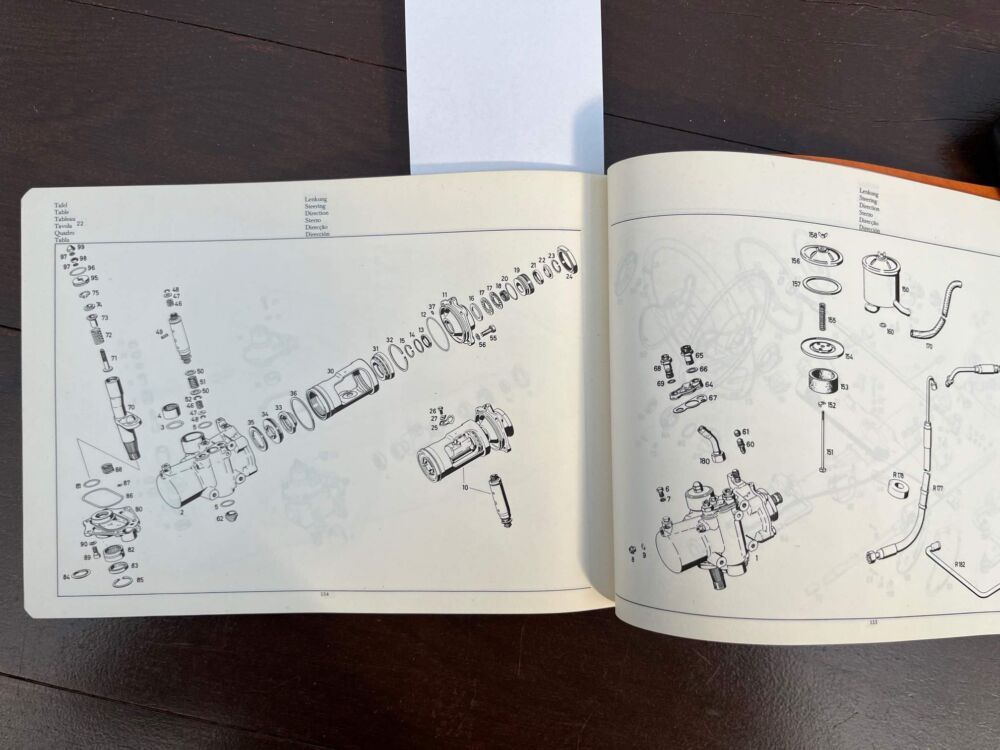 Tafel
Table
Tableau
Tavola 22
Quadro
Tabla
Lenkung
Steering
Direction
Sterzo
Direcção
Dirección
99
97
98
97
96
95
75
74
73
72
71
70
48
47
46
49
50
51
50
52
46
47
48
3
5
88
87
81
86
80
90
89
82
83
84
85
2
5
62
35
34
33
36
30
31
32
15
14
13
12
37
11
16
17
17
18
20
19
21
22
23
24
56
55
26
27
25
10
154
Lenkung
Steering
Direction
Sterzo
Direcção
Dirección
158
156
157
155
154
153
152
151
150
160
170
68
65
69
66
64
67
61
60
180
6
7
8
9
1
R 178
R 177
R 182